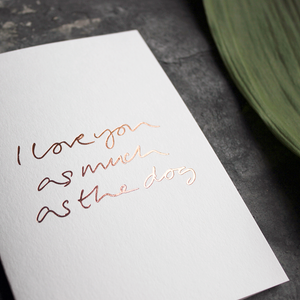 I love you
as much
as the dog